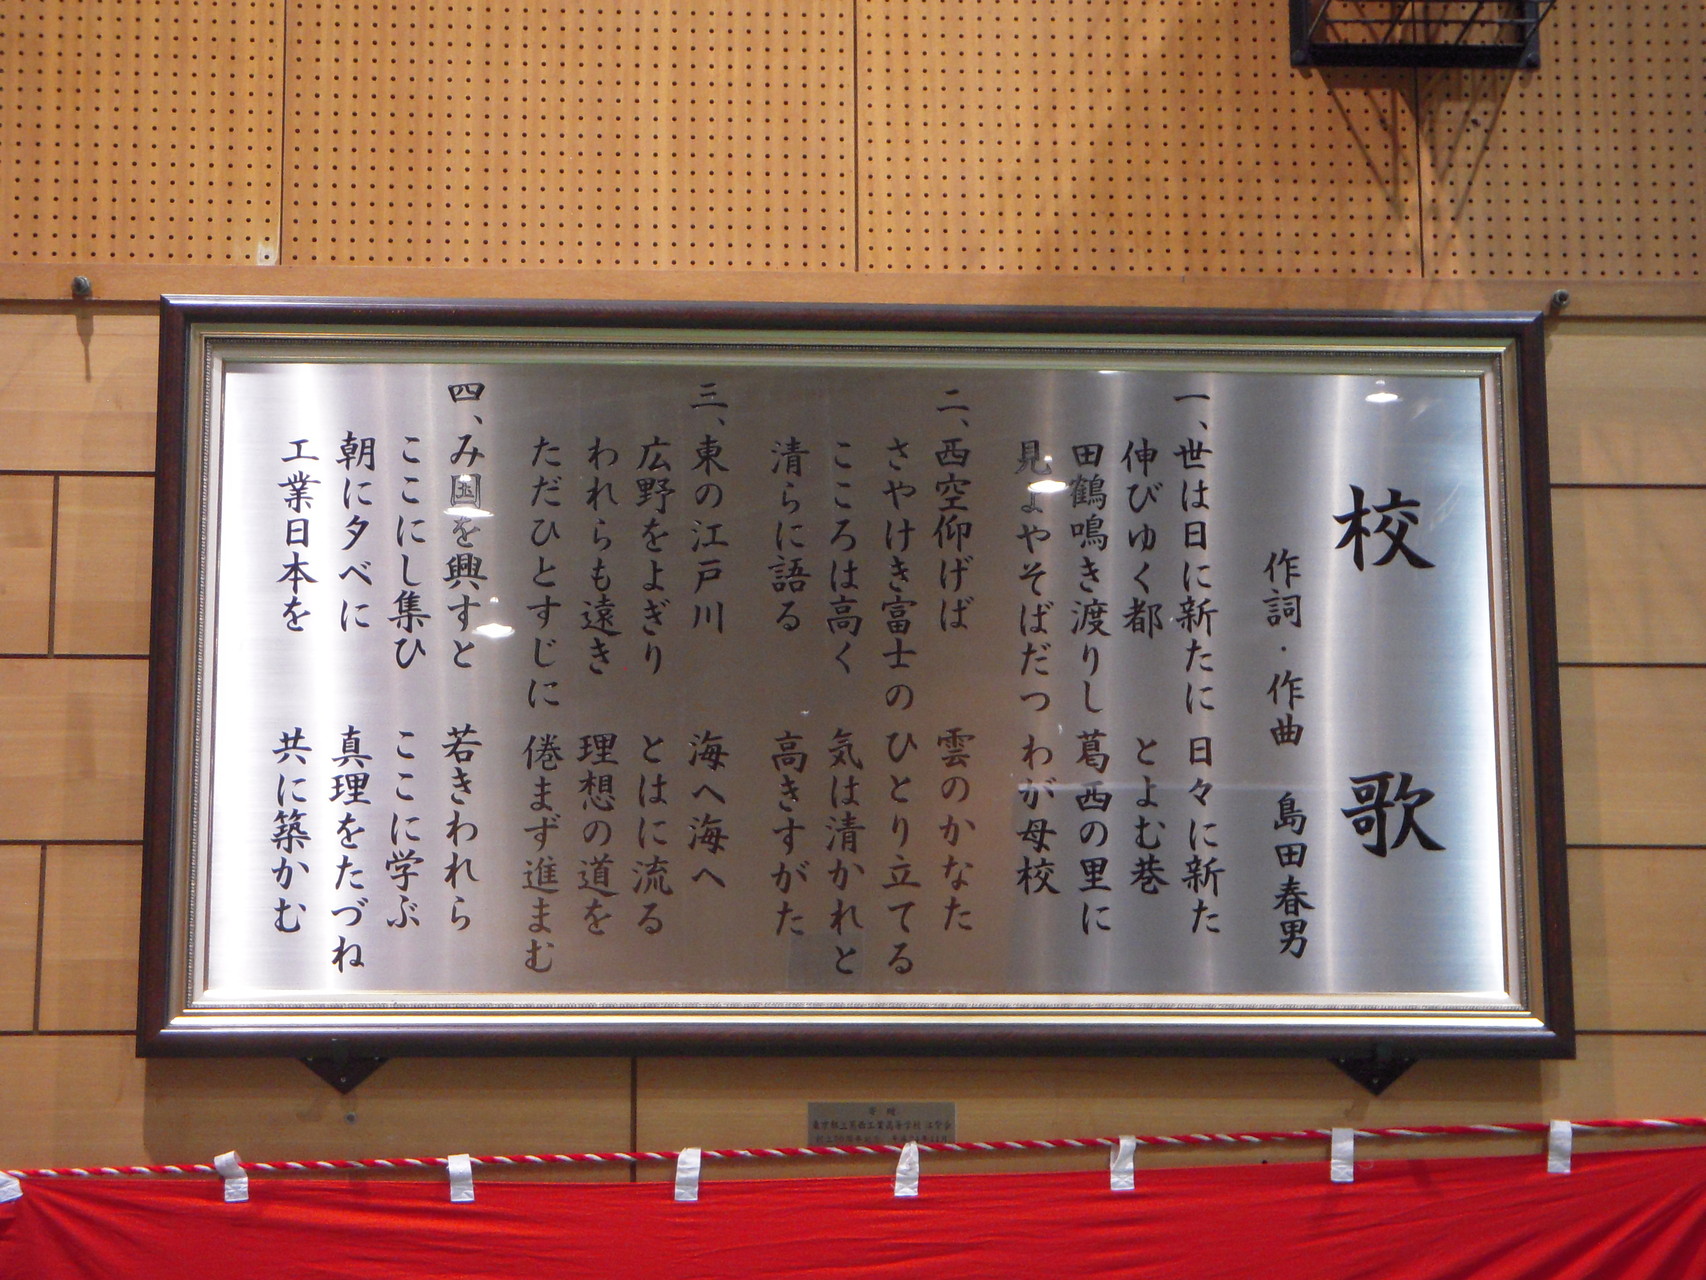 校歌
作詞・作曲 島田春男
一、世は日に新たに 日々に新た
伸びゆく都 とよむ巷
田鶴鳴き渡りし 葛西の里に
見よやそばだつ わが母校
二、西空仰げば 雲のかなた
さやけき富士の ひとり立てる
こころは高く 気は清かれと
清らに語る 高きすがた
三、東の江戸川 海へ海へ
広野をよぎり とはに流る
われらも遠き 理想の道を
ただひとすじに 倦まず進まむ
四、み国を興すと 若きわれら
ここにし集ひ ここに学ぶ
朝に夕べに 真理をたづね
工業日本を 共に築かむ